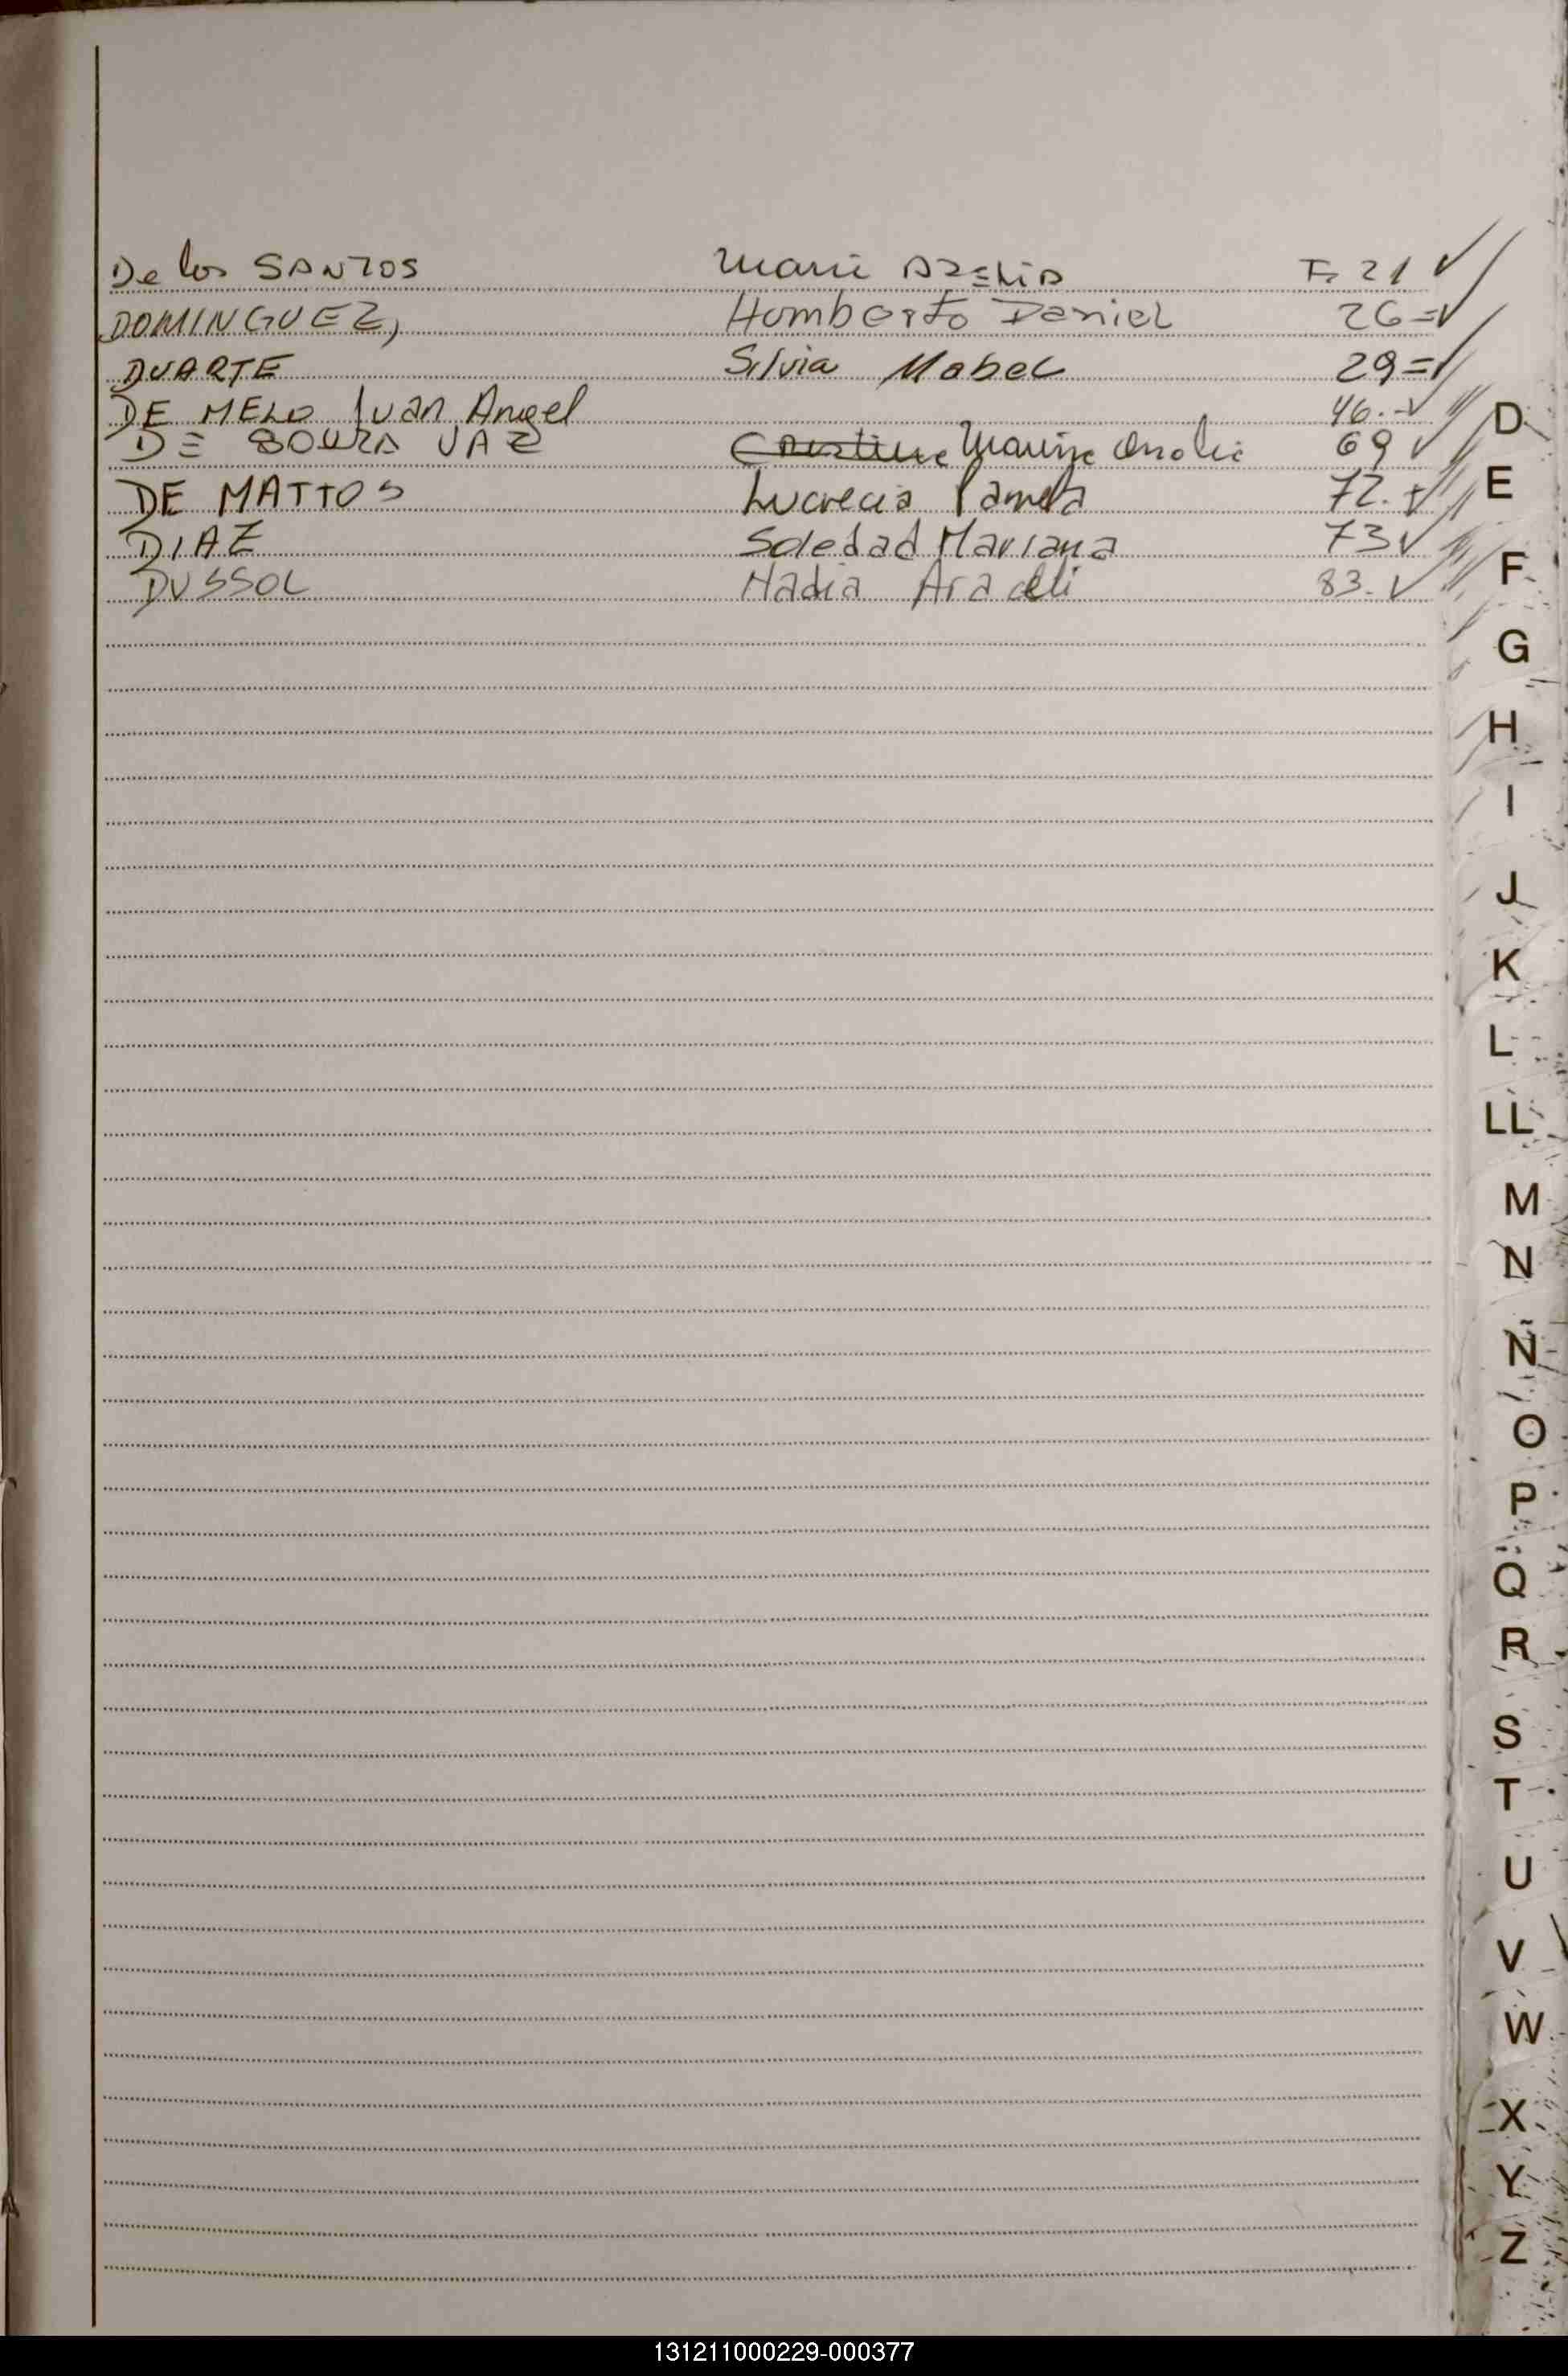 De los SANTOS Maria AZELIA F. 21 ✓
DOMINGUEZ, Homberto Daniel 26=✓
DUARTE Silvia Mabel 29=✓
DE MELO Juan Angel 46.-✓
DE SOUZA VAZ Cristina 69 ✓
DE MATTOS Lucrecia Pamela 72. ✓
DIAZ Soledad Mariana 73✓
DUSSOL Nadia Araceli 83. ✓
D
E
F
G
H
I
J
K
L
LL
M
N
Ñ
O
P
Q
R
S
T
U
V
W
X
Y
Z
131211000229-000377